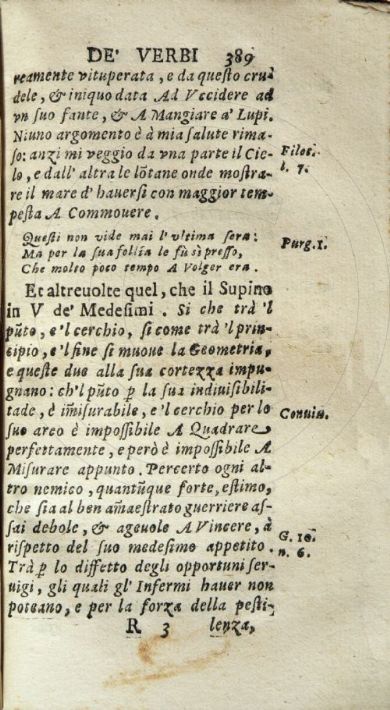 DE' VERBI 389
reamente vituperata, e da questo cru
dele, & iniquo data Ad Vccidere ad
vn suo fante, & A Mangiare a' Lupi.
Niuno argomento è à mia salute rima-
so: anzi mi veggio da vna parte il Cie-
lo, e dall' altra le lōtane onde mostra-
re il mare d' hauersi con maggior tem-
pesta A Commouere.
Filoc.
l. 7.
Questi non vide mai l' vltima sera:
Ma per la sua follia le fù sì presso,
Che molto poco tempo A Volger era.
Purg. 1.
Et altreuolte quel, che il Supino
in V de' Medesimi. Si che trà 'l
pūto, e 'l cerchio, si come trà 'l prin-
cipio, e 'l fine si muoue la Geometria,
e queste due alla sua cortezza impu-
gnano: ch'l pūto ꝑ la sua indiuisibili-
tade, è im̄isurabile, e 'l cerchio per lo
suo arco è impossibile A Quadrare
perfettamente, e però è impossibile A
Misurare appunto. Percerto ogni al-
tro nemico, quantūque forte, estimo,
che sia al ben am̄aestrato guerriere as-
sai debole, & ageuole A Vincere, à
rispetto del suo medesimo appetito.
Trà ꝑ lo diffetto degli opportuni ser-
uigi, gli quali gl' Infermi hauer non
poteano, e per la forza della pesti-
Conuiu.
G. 10.
n. 6.
R 3 lenza,